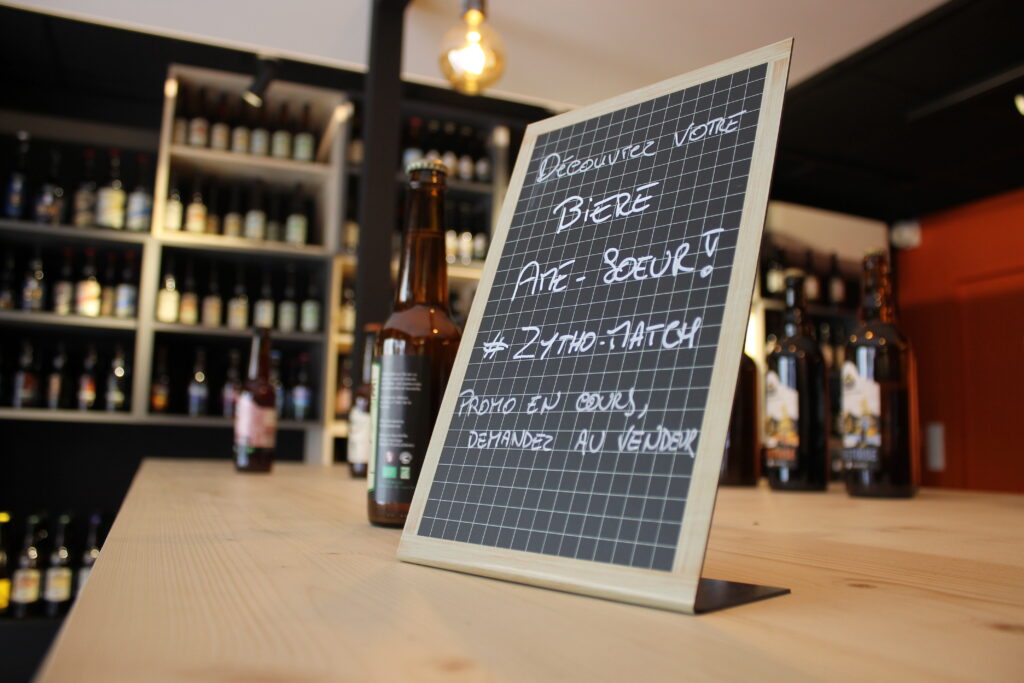 Découvrez votre
Bière
Ame-soeur!
# Zytho-Match
Promo en cours,
demandez au vendeur